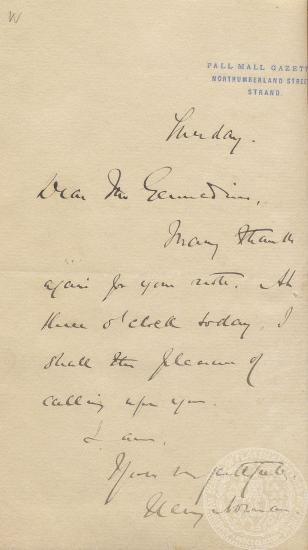 W
PALL MALL GAZETT
NORTHUMBERLAND STREE
STRAND.
Dear Mr Gennadius,
Many thanks
again for your note. At
three o'clock today I
shall the pleasure of
calling upon you.
I am,
Yours faithfully
Henry Norman.